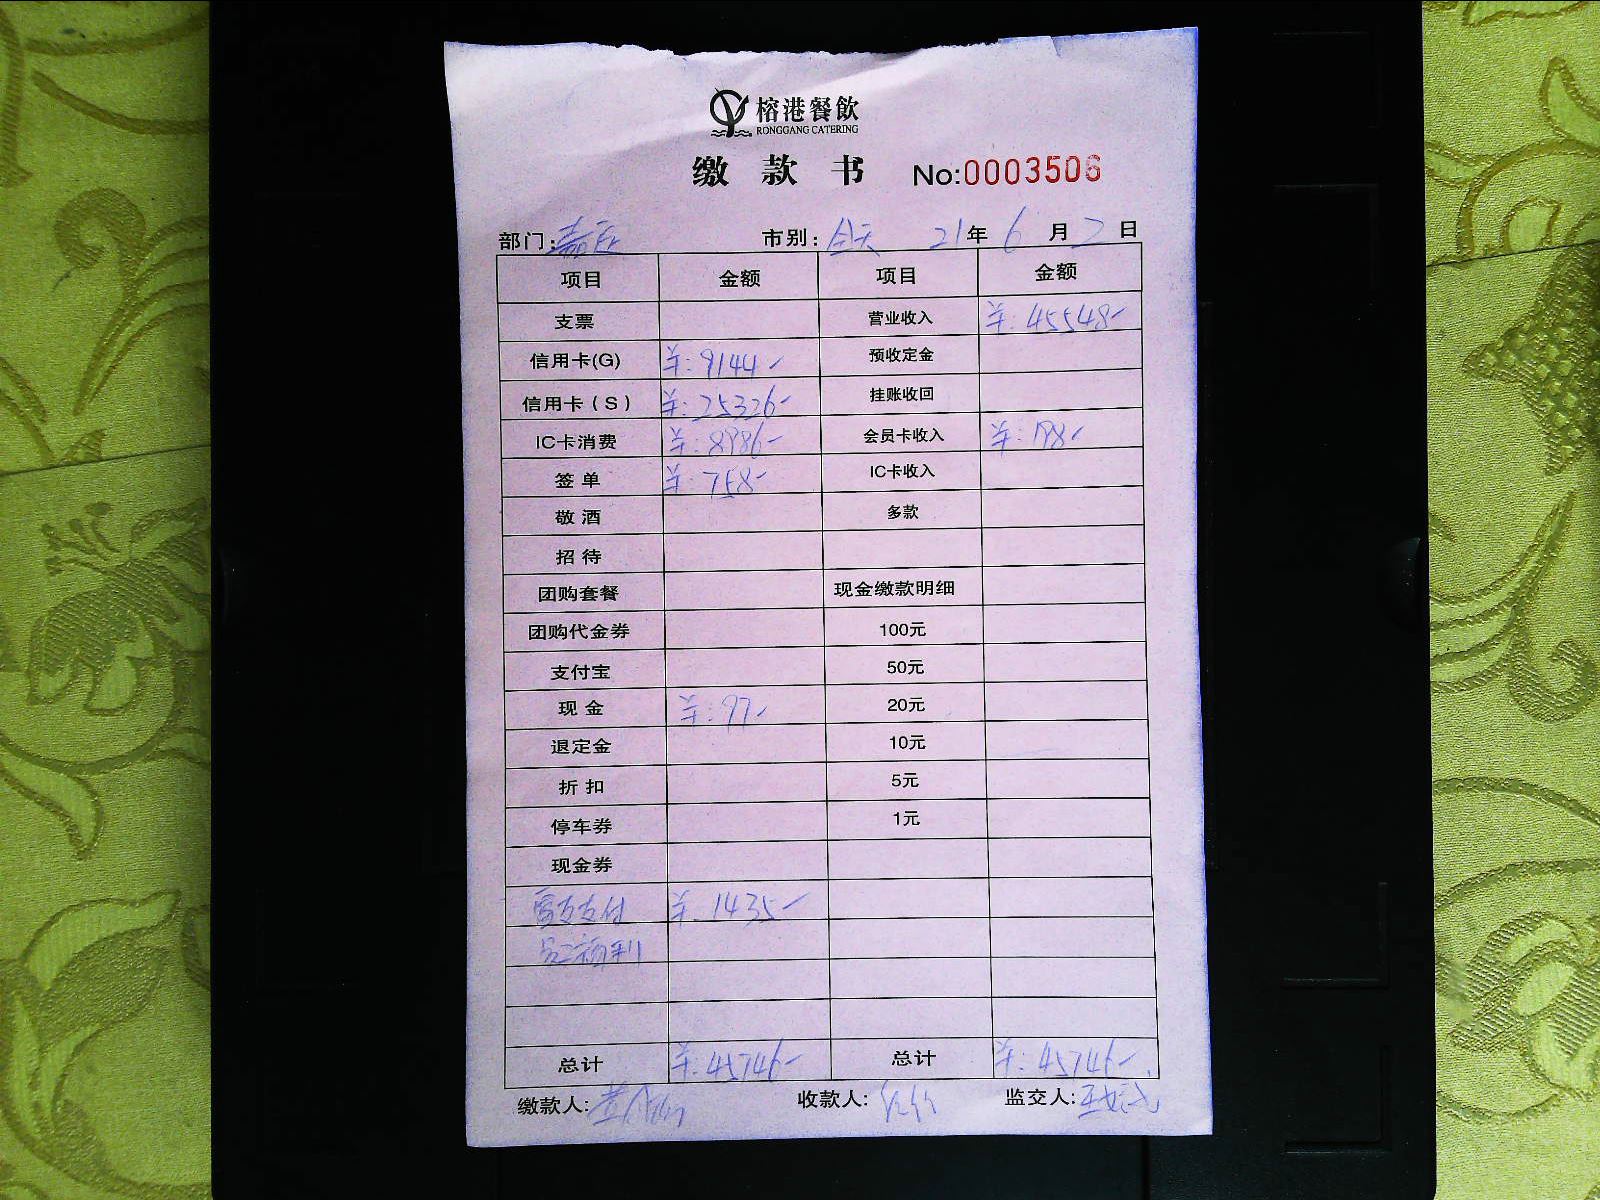 榕港餐飲
RONGGANG CATERING
缴款书 No:0003506
部门: 市别: 全天 21年 6月 2日
项目 金额 项目 金额
支票 营业收入 ¥:45548-
信用卡(G) ¥:9144- 预收定金
信用卡(S) ¥:25326- 挂账收回
IC卡消费 ¥:8986- 会员卡收入 ¥:198-
签单 ¥:758- IC卡收入
敬酒 多款
招待
团购套餐 现金缴款明细
团购代金券 100元
支付宝 50元
现金 ¥:97- 20元
退定金 10元
折扣 5元
停车券 1元
现金券
富友支付 ¥:1435-
员工福利
总计 ¥:45746- 总计 ¥:45746-
缴款人: 收款人: 监交人: